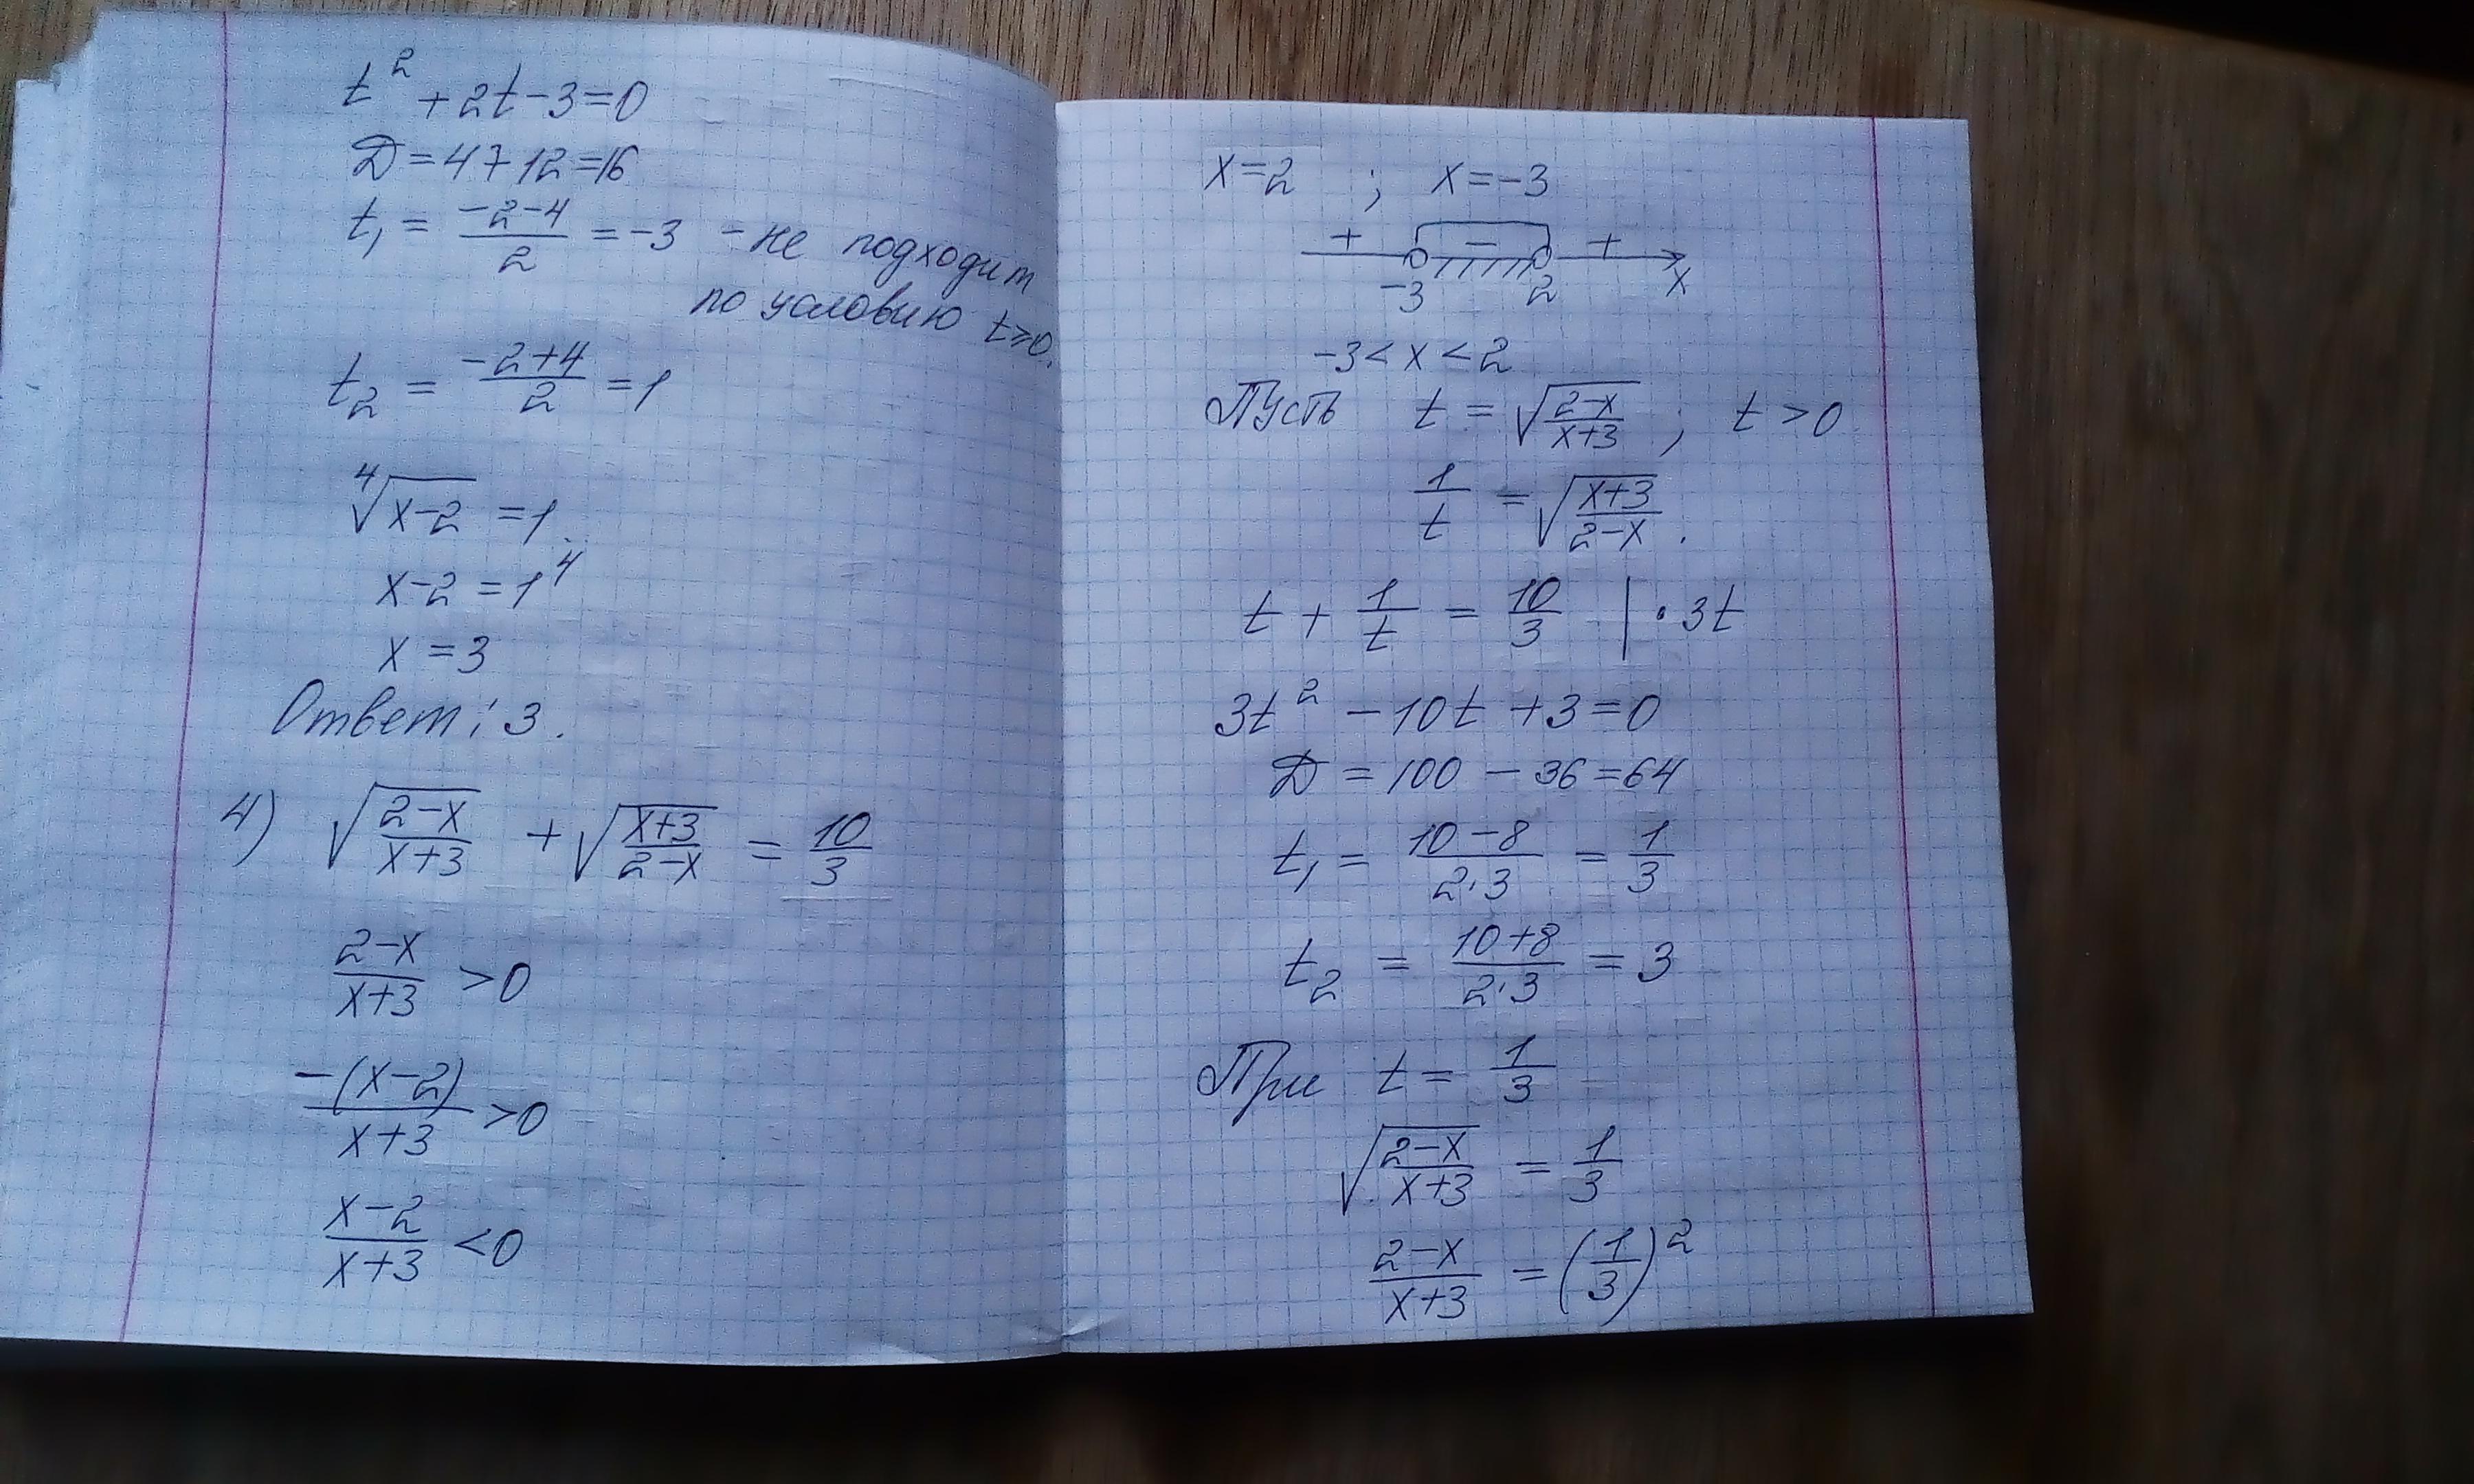 t² + 2t - 3 = 0
Д = 4 + 12 = 16
t₁ = (-2-4)/2 = -3 - не подходит
по условию t ≥ 0.
t₂ = (-2+4)/2 = 1
⁴√(x-2) = 1
x-2 = 1⁴
x = 3
Ответ: 3.
4) √((2-x)/(x+3)) + √((x+3)/(2-x)) = 10/3
(2-x)/(x+3) > 0
-(x-2)/(x+3) > 0
(x-2)/(x+3) < 0
x = 2 ; x = -3
+ - +
-3 2 x
-3 < x < 2
Пусть t = √((2-x)/(x+3)) ; t > 0
1/t = √((x+3)/(2-x)).
t + 1/t = 10/3 | · 3t
3t² - 10t + 3 = 0
Д = 100 - 36 = 64
t₁ = (10-8)/(2·3) = 1/3
t₂ = (10+8)/(2·3) = 3
При t = 1/3
√((2-x)/(x+3)) = 1/3
(2-x)/(x+3) = (1/3)²